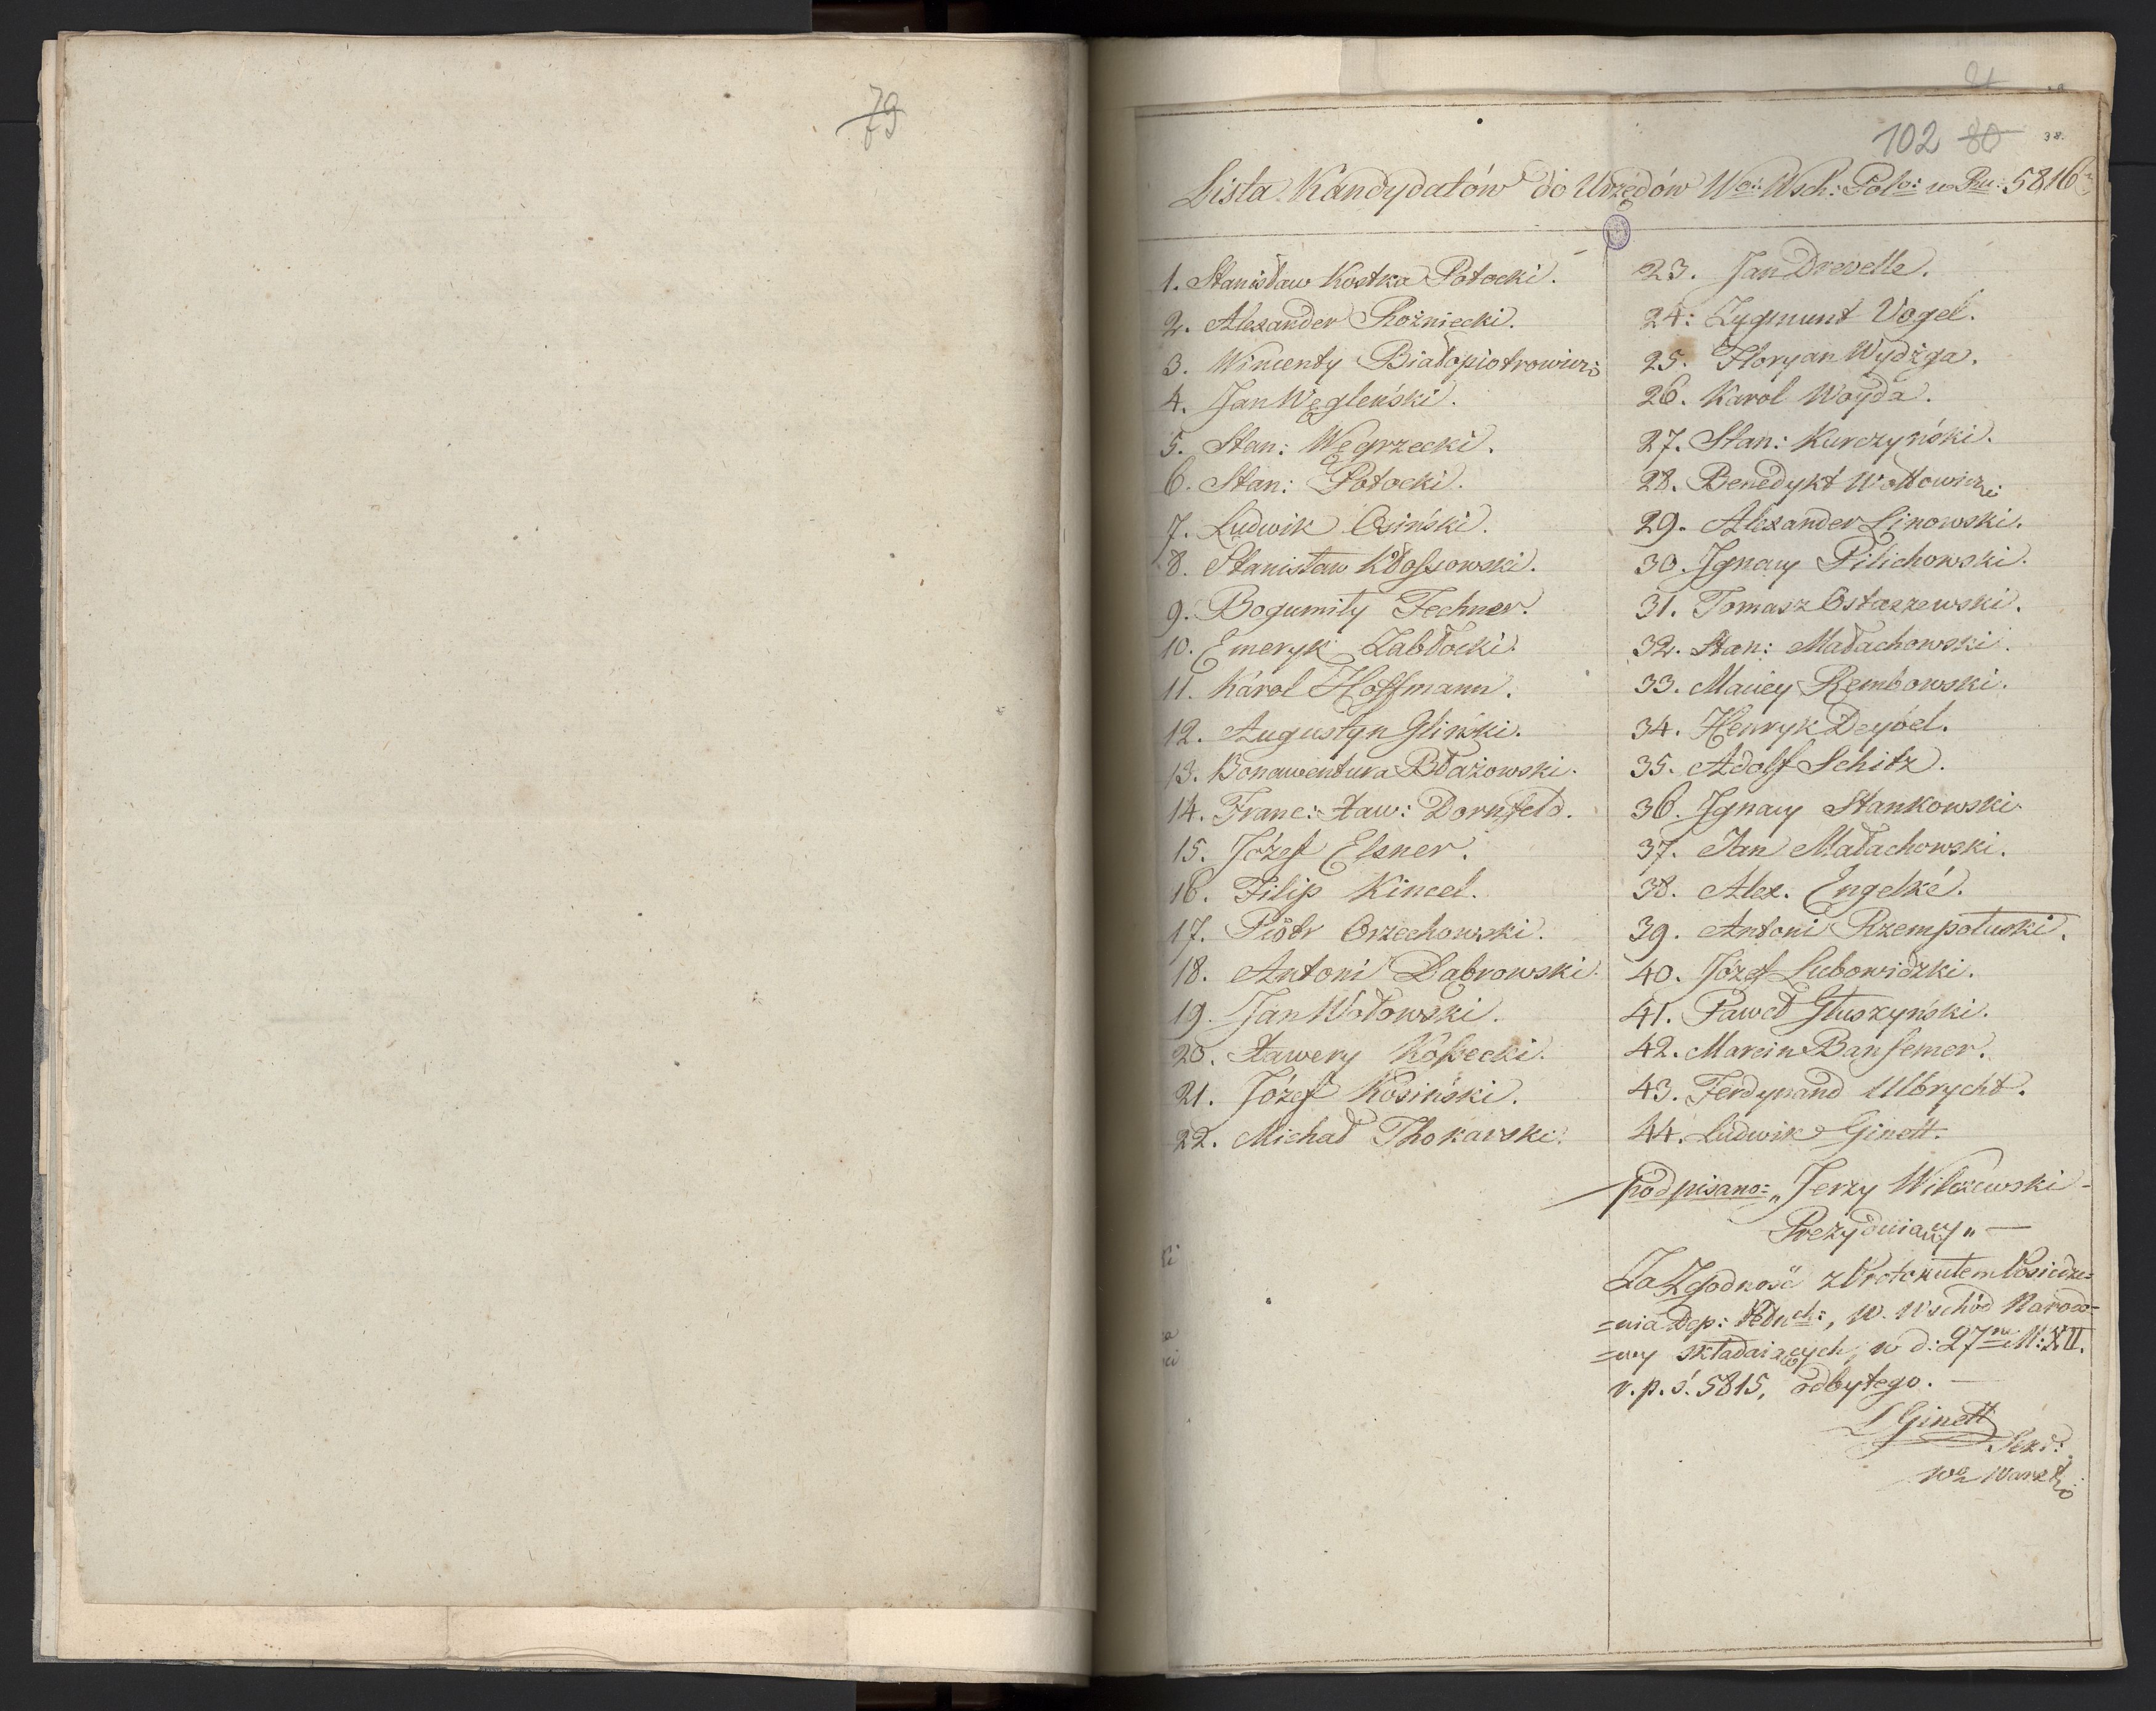 79
102 80 38.
Lista Kandydatów do Urzędów Wo: Wsch: Polo: w Ru: 5816
1. Stanisław Kostka Potocki.
2. Alexander Rożniecki.
3. Wincenty Białopiotrowicz
4. Jan Węgleński.
5. Stan: Węgrzecki.
6. Stan: Potocki.
7. Ludwik Osiński.
8. Stanisław Kłossowski.
9. Bogumiły Fechner.
10. Emeryk Zabłocki.
11. Karol Hoffmann.
12. Augustyn Gliński.
13. Bonawentura Błażowski.
14. Franc: Xaw: Dornfeld.
15. Józef Elsner.
16. Filip Kincel.
17. Piotr Orzechowski.
18. Antoni Dąbrowski.
19. Jan Wołowski.
20. Xawery Kossecki.
21. Józef Kosiński.
22. Michał Thokarski.
23. Jan Drevelle.
24: Zygmunt Vogel.
25. Floryan Wydżga.
26. Karol Woyda.
27. Stan: Kurczyński.
28. Benedykt Wołłowicz
29. Alexander Linowski.
30. Ignacy Pilichowski.
31. Tomasz Ostaszewski.
32. Stan: Małachowski.
33. Maciey Rembowski.
34. Henryk Deybel.
35. Adolf Schitz.
36. Ignacy Stankowski
37. Jan Małachowski.
38. Alex. Engelké.
39. Antoni Rzempołuski.
40. Józef Lubowidzki.
41. Paweł Głuszyński.
42. Marcin Bansemer.
43. Ferdynand Ulbrycht.
44. Ludwik Ginett.
podpisano: „Jerzy Wilczewski
Prezyduiący„ —
Za Zgodność z Protokułem Posiedze=
=nia Dep: , W. Wschód Narodo=
=wy składaiących, w d: 27 M: XII.
r. p. ś. 5815, odbytego. —
L Ginett
Sekr: